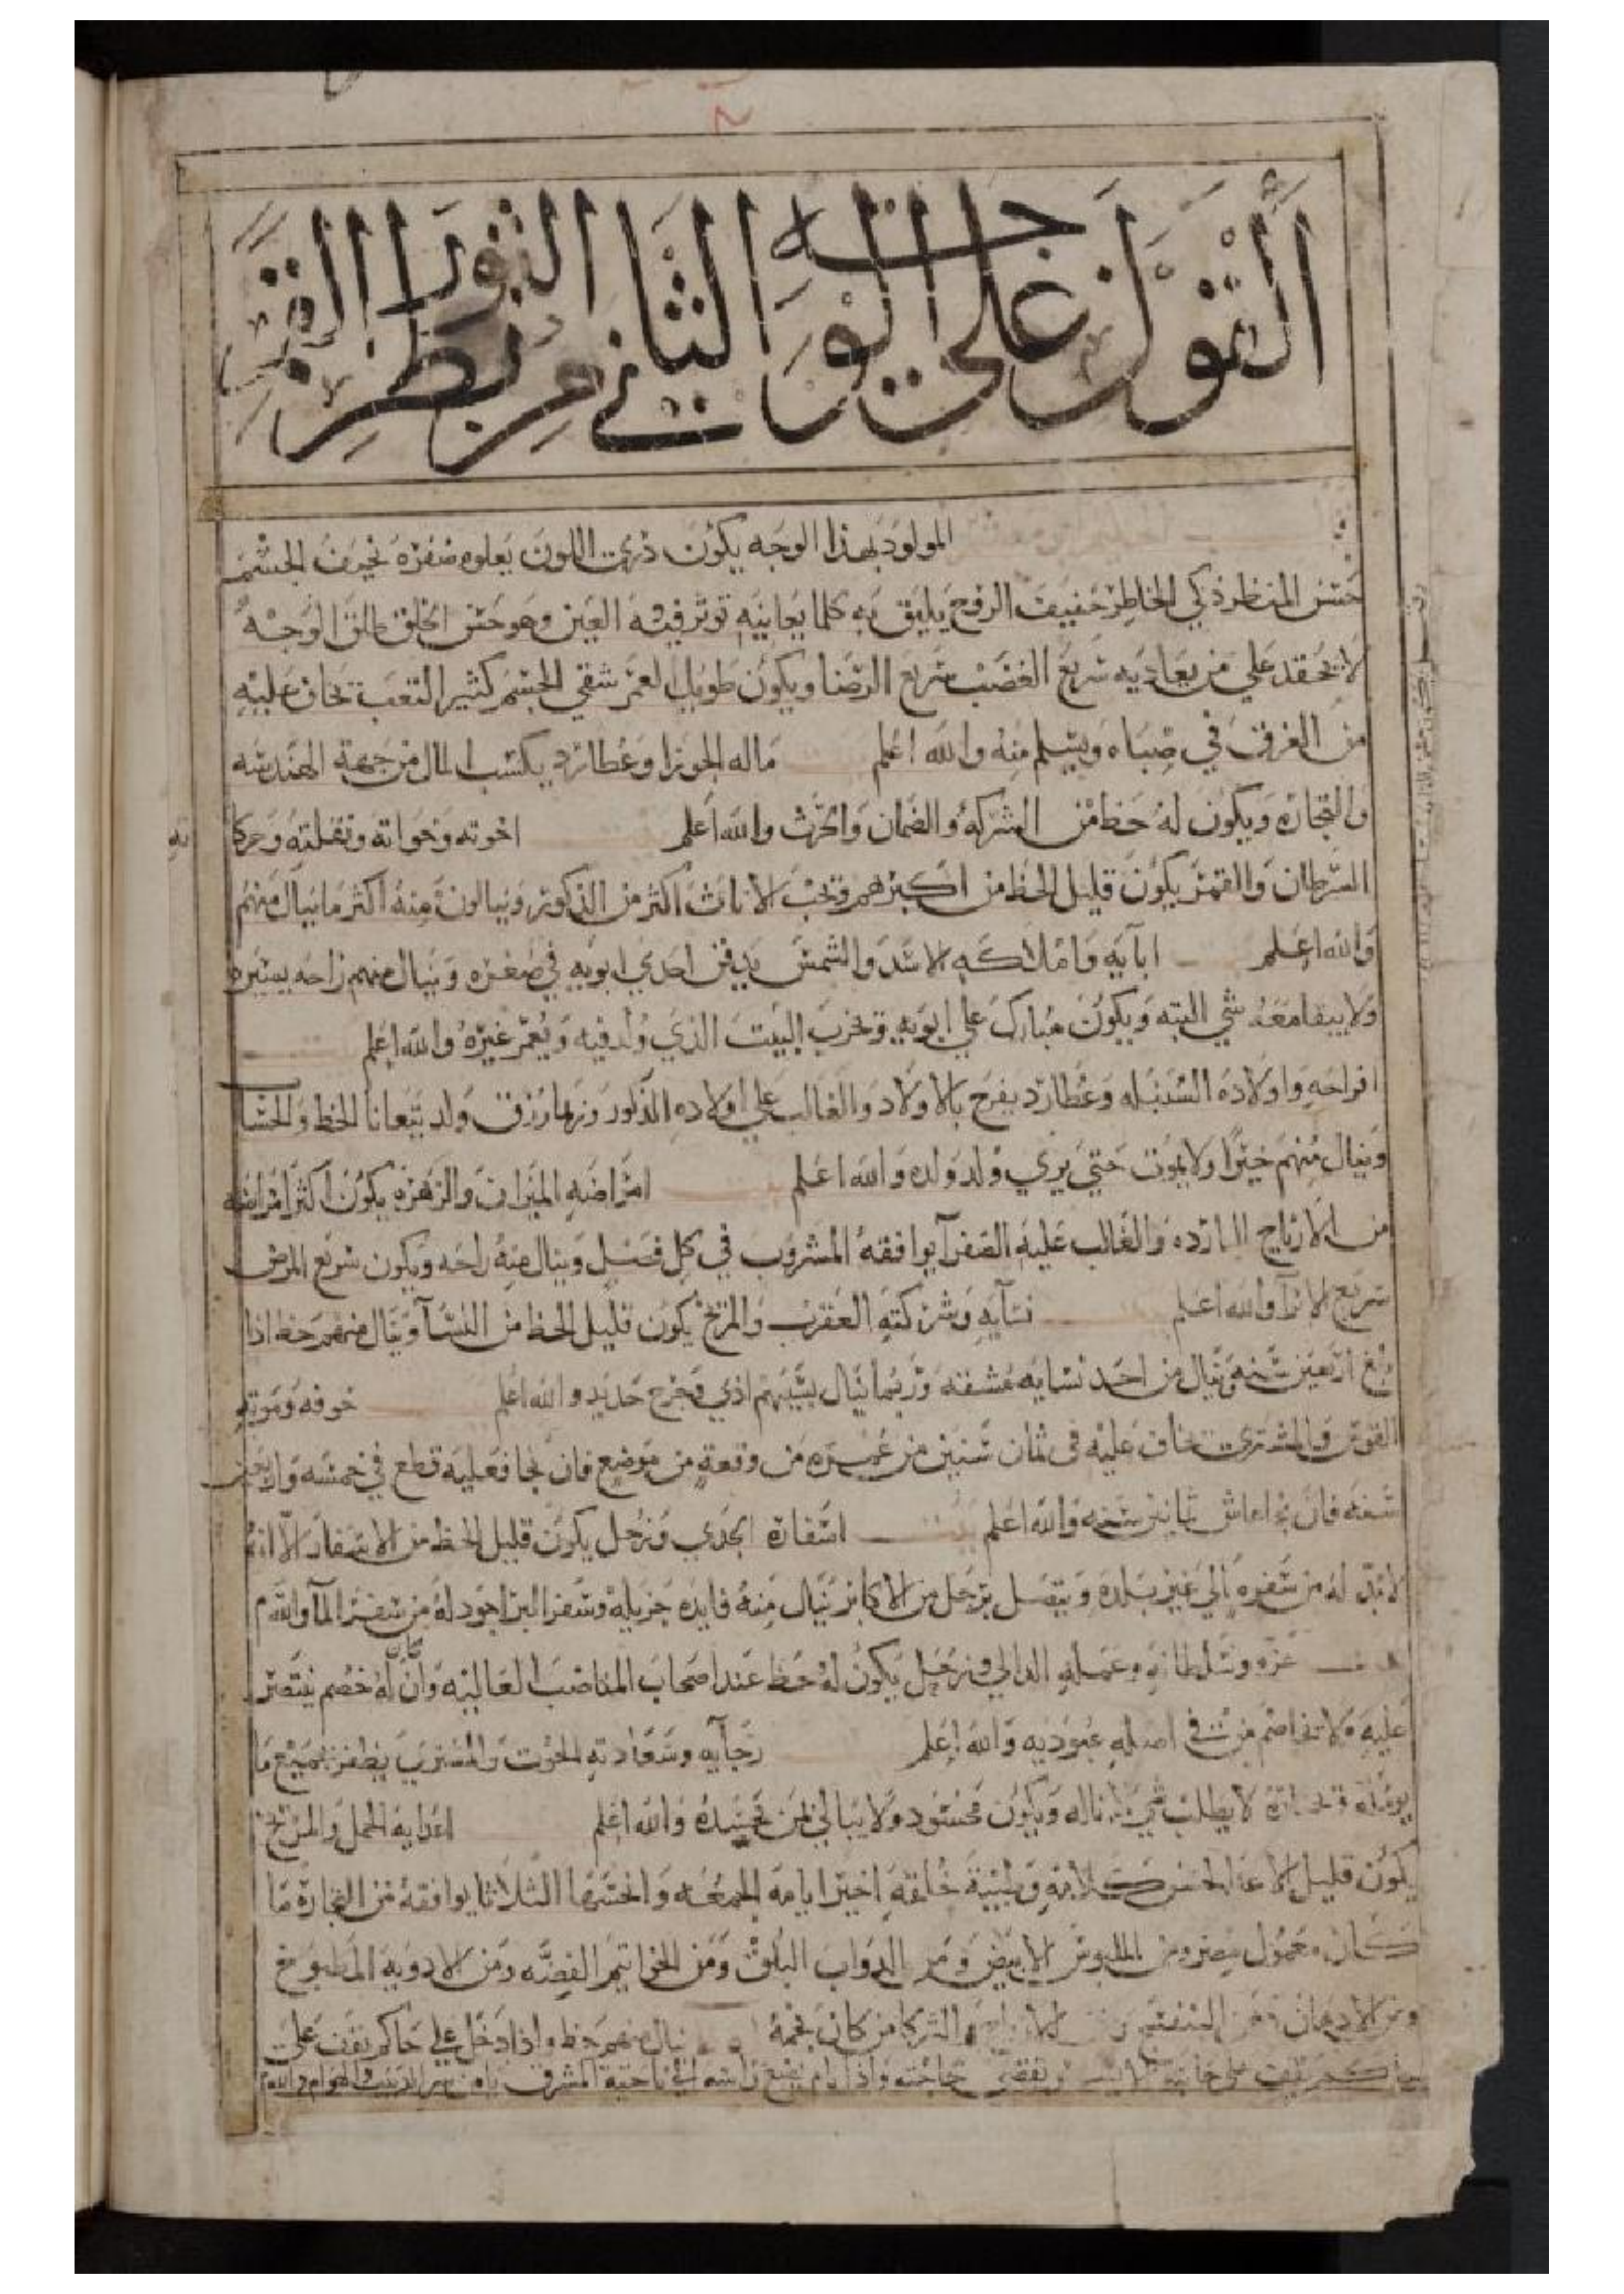 القول على الوجه الثاني من الثور رب القمر
المولود بهذا الوجه يكون دري اللون يعلوه صفره نحيف الجسم
حسن المنظر ذكي الخاطر خفيف الروح يليق به كلما يعانيه توثر فيه العين وهو حسن الخلق طلق الوجه
لا يحقد علي من يعاديه سريع الغضب سريع الرضا ويكون طويل العمر شقي الجسم كثير التعب يخاف عليه
من الغرق في صباه ويسلم منه والله اعلم ماله الجوزا وعطارد يكتسب المال من جهة الهندسه
والتجاره ويكون له حظ من الشركه والضمان والحرث والله اعلم اخوته وخواته ونقلته وحركا
ته
السرطان والقمر يكون قليل الحظ من اكبرهم وتحب الاناث اكثر من الذكور وينالون منه اكثر ما ينال منهم
والله اعلم ابآيه واملاكه الاسد والشمس يدفن احدي ابويه في صغره وينال منهم راحه يسيره
ولا يبقا معه شي البته ويكون مبارك علي ابويه وتخرب البيت الذي ولد فيه ويعمر غيره والله اعلم
افراحه واولاده السنبله وعطارد يفرح بالاولاد والغالب علي اولاده الذكور وربما رزق ولد يتعانا الخط والحساب
وينال منهم خيرا ولا يموت حتي يري ولد ولده والله اعلم امراضه الميزان والزهره يكون اكثر امراضه
من الارياح البارده والغالب عليه الصفرآ يوافقه المشروب في كل فصل وينال منه راحه ويكون سريع المرض
سريع الابرآ والله اعلم نسآيه وشركته العقرب والمريخ يكون قليل الحظ من النسآ وينال منهم حظ اذا
بلغ اربعين سنه وينال من احد نسايه مشقه وربما ينال بسببهم اذي وجرح حديد والله اعلم خوفه وموته
القوس والمشتري يخاف عليه في ثمان سنين من عمره من وقعة من موضع فان نجا فعليه قطع في خمسه واربعين
سنه فان نجا عاش ثمانين سنه والله اعلم اسفاره الجدي وزحل يكون قليل الحظ من الاسفار الا انه
لا بد له من سفره الي غير بلده ويتصل برجل من الاكابر ينال منه فايده جزيله وسفر البر اجود له من سفر المآ والله
عزه وسلطانه وعمله الدالي وزحل يكون له حظ عند اصحاب المناصب العاليه وان كان له خصم ينتصر
عليه ولا يخاصم من في اصله عبوديه والله اعلم رجآيه وسعادته الحوت والمشتري يظفر بجميع ما
يومله لا يطلب شي الا ناله ويكون محسود ولا يبالي لمن تحسده والله اعلم اعدايه الحمل والمريخ
يكون قليل الاعدا لحسن كلامه وطيبة خلقه اخير ايامه الجمعه وانحسها الثلاثا يوافقه من التجاره ما
كان معمول بمصر ومن الملبوس الابيض ومن الدواب البلق ومن الخواتيم الفضه ومن الادويه المطبوخ
ومن الادهان دهن البنفسج ومن الشركا من كان نجمه ينال منهم حظ واذا دخل علي حاكم يقف علي
حاجته واذا نام يضع راسه الي ناحية المشرق